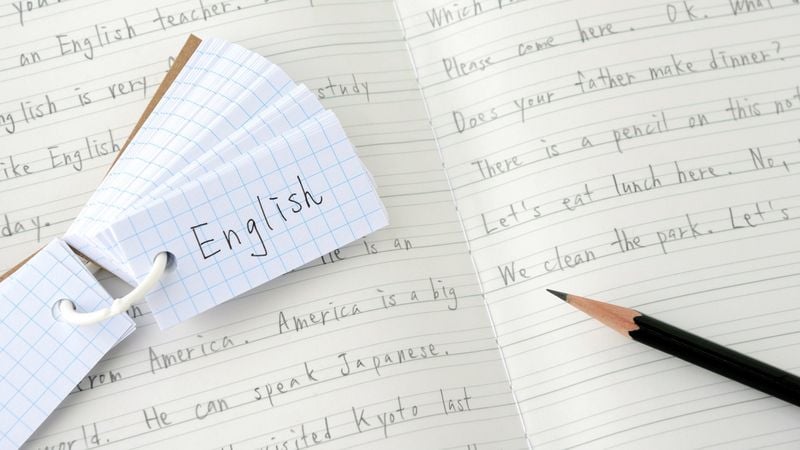 you
an English teacher.
English is very
study
like English
day.
He is an
from America. America is a big
world. He can speak Japanese.
visited Kyoto last
English
Which
Please come here. OK. What
Does your father make dinner?
There is a pencil on this
Let's eat lunch here. No,
We clean the park. Let's